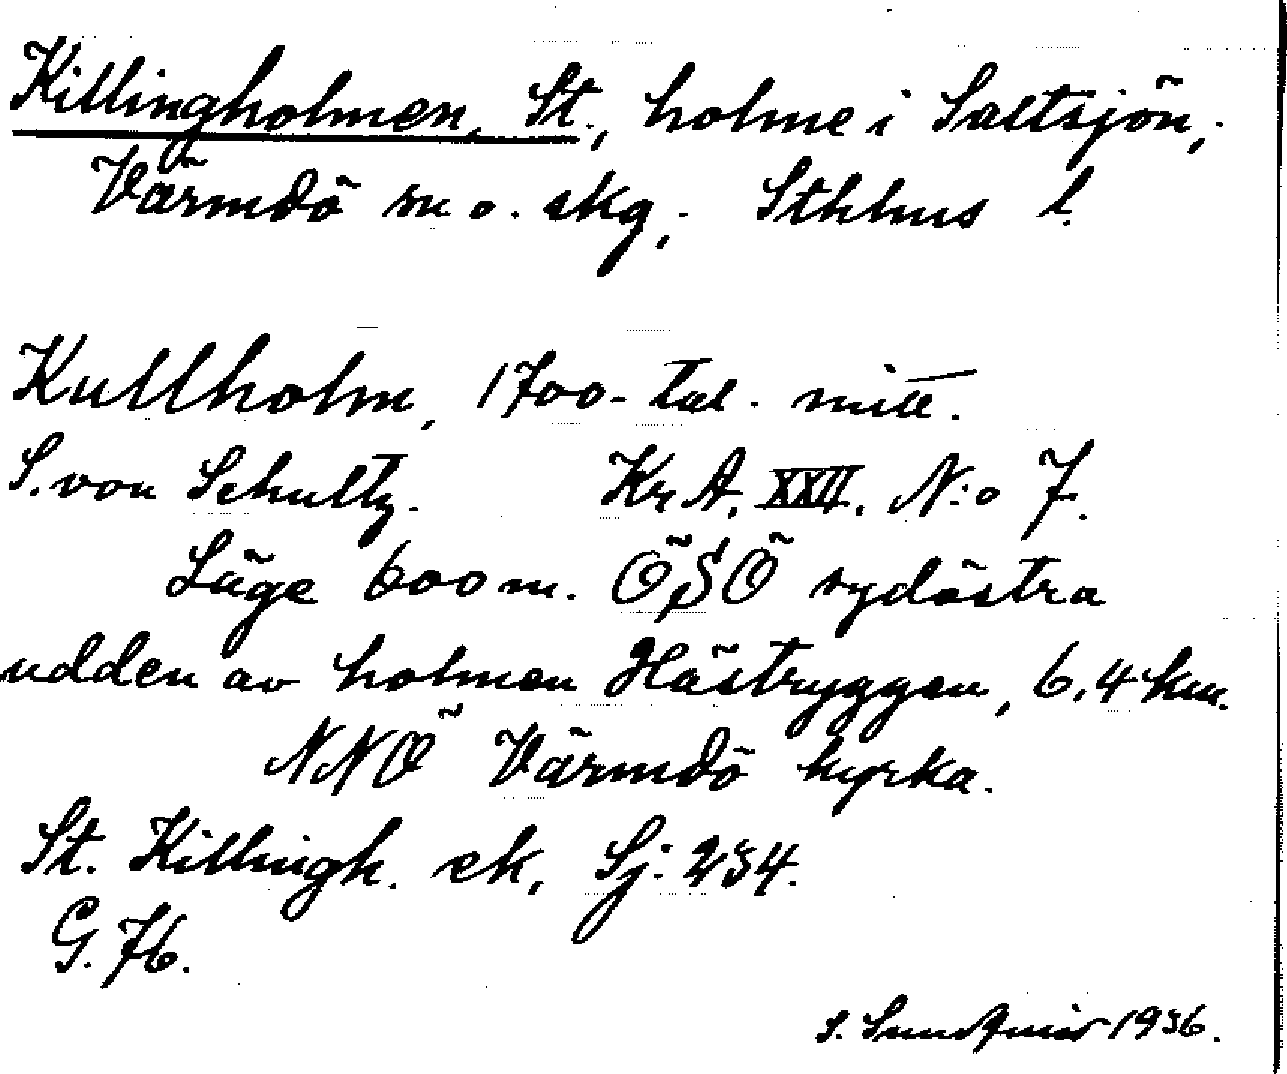 Killingholmen, St., holme i Saltsjön,
Värmdö sn o. skg, Sthlms l.
Kullholm, 1700-tal. mitt.
S. von Schultz. Kr A. XXII. N:o 7.
Läge 600 m. ÖSÖ sydöstra
udden av holmen Hästryggen, 6,4 km.
NNÖ Värmdö kyrka.
St. Killingh. ek, Sj: 234.
G. 76.
S. Sundqvist 1936.